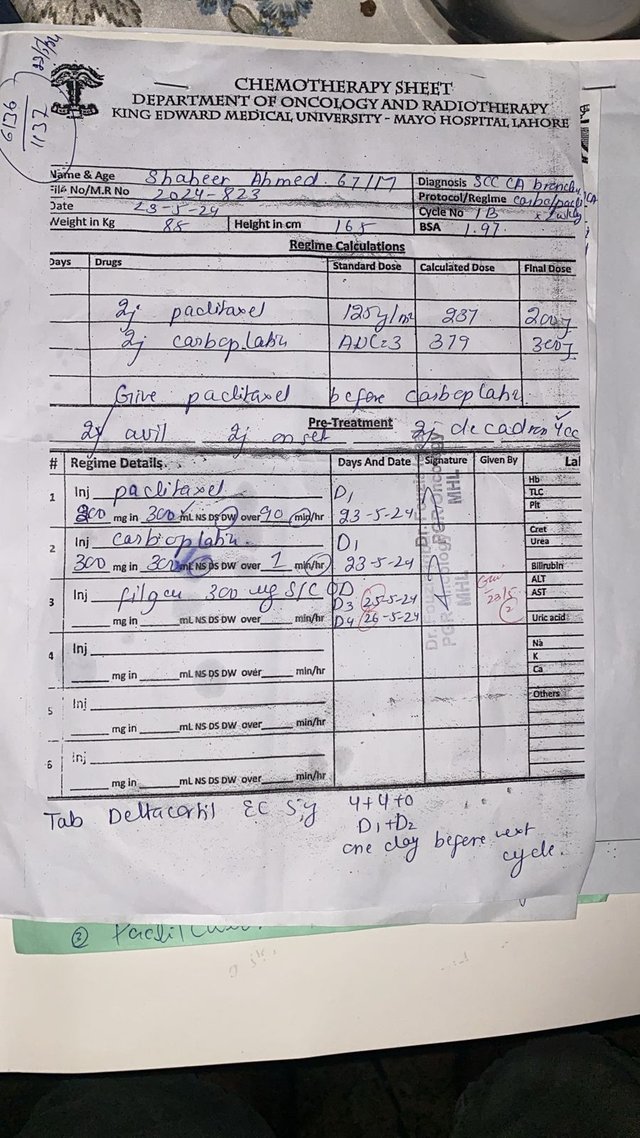 23/5/24
6136
1132
CHEMOTHERAPY SHEET
DEPARTMENT OF ONCOLOGY AND RADIOTHERAPY
KING EDWARD MEDICAL UNIVERSITY - MAYO HOSPITAL LAHORE
Name & Age Shabeer Ahmed 67/M Diagnosis SCC CA
File No/M.R No 2024-823 Protocol/Regime
Date 23-5-24 Cycle No 1B
Weight in Kg 85 Height in cm 165 BSA 1.97
Regime Calculations
Days Drugs Standard Dose Calculated Dose Final Dose
Inj paclitaxel 237
Inj carboplatin AUC=3 379
Give paclitaxel before carboplatin
Pre-Treatment
Inj avil Inj onset Inj decadron 4cc
# Regime Details. Days And Date Signature Given By
1 Inj paclitaxel D1
200 mg in 300 mL NS DS DW over 90 min/hr 23-5-24
2 Inj carboplatin D1
300 mg in mL NS DS DW over 1 min/hr 23-5-24
3 Inj 300 ug S/C OD
mg in mL NS DS DW over min/hr D3 25-5-24
D4 26-5-24
4 Inj
mg in mL NS DS DW over min/hr
5 Inj
mg in mL NS DS DW over min/hr
6 Inj
mg in mL NS DS DW over min/hr
Hb
TLC
Plt
Cret
Urea
Bilirubin
ALT
AST
Uric acid
Na
K
Ca
Others
PGR Oncology
MHL
Tab Deltacortil EC Sig 4+4+0
D1+D2
one day before next
cycle.